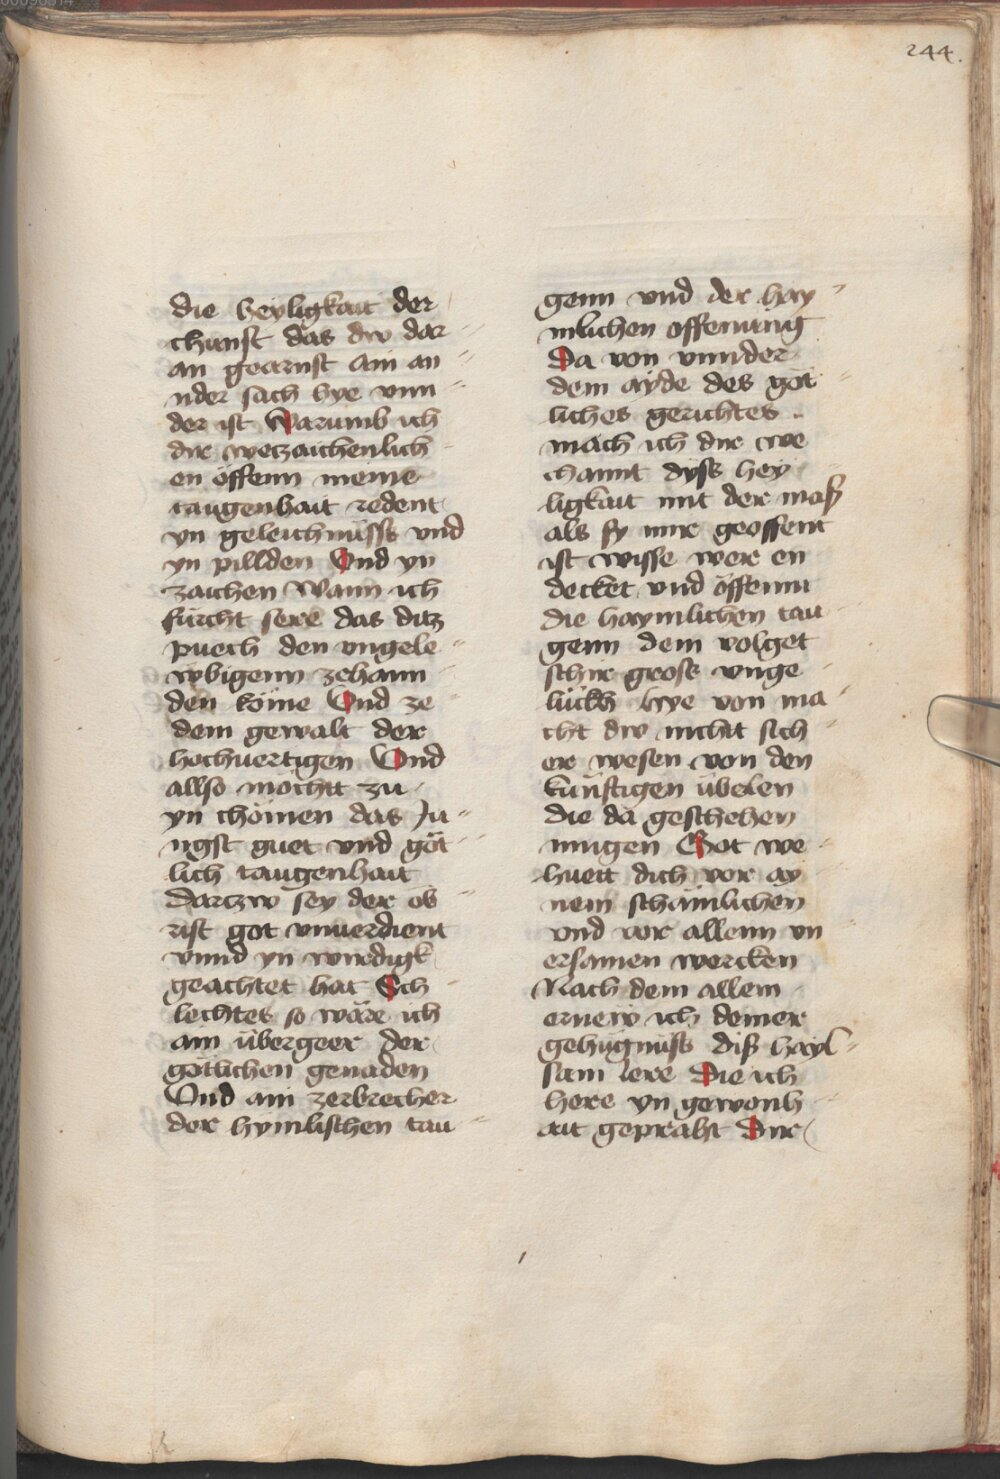 244.
die heyligkait der
chunst das dw dar
an gearnst Ain an
nder sach hye vnn
der ist Warumb ich
dir wetzaichenlich
en öffenn meine
taugenhait redent
yn geleichnüss vnd
yn pillden Vnd yn
zaichen Wann ich
fürcht sere das ditz
puech den vngele
wbigenn zehann
den köme Vnd ze
dem gewalt der
hochuertigen Vnd
allso möcht zu
yn chömen das Ju
ngst guet vnd göt
lich taugenhait
dartzw sey der ob
rist got vnuerdient
vnnd yn wirdigk
geachtet hat Sch
lechtes so wäre ich
ain übergeer der
götlichen genaden
Vnd ain zerbrecher
der hymlischen tau
genn vnd der hay
mlichen offenung
Da von vnnder
dem ayde des göt
liches gerichtes
mach ich dir we
channt dyss hey
ligkait mit der maß
als sy mir geoffent
ist wisse wer en
decket vnd öffennt
die haymlichen tau
genn dem volget
schir gross vnge
lückh hye von ma
cht dw nicht sich
er wesen von den
künftigen übelen
die da geschehen
mügen Got we
huett dich vor ay
nem schämlichen
vnd vor allenn vn
ersamen wercken
Nach dem allem
ernew ich deiner
gehugnüss diß hayl
sam lere Die ich
here yn gewonh
ait gepraht Dir